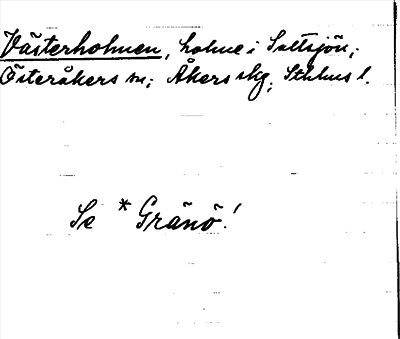 Västerholmen, holme i Saltsjön,
Österåkers sn; Åkers skg, Sthlms l.
Se * Gränö!